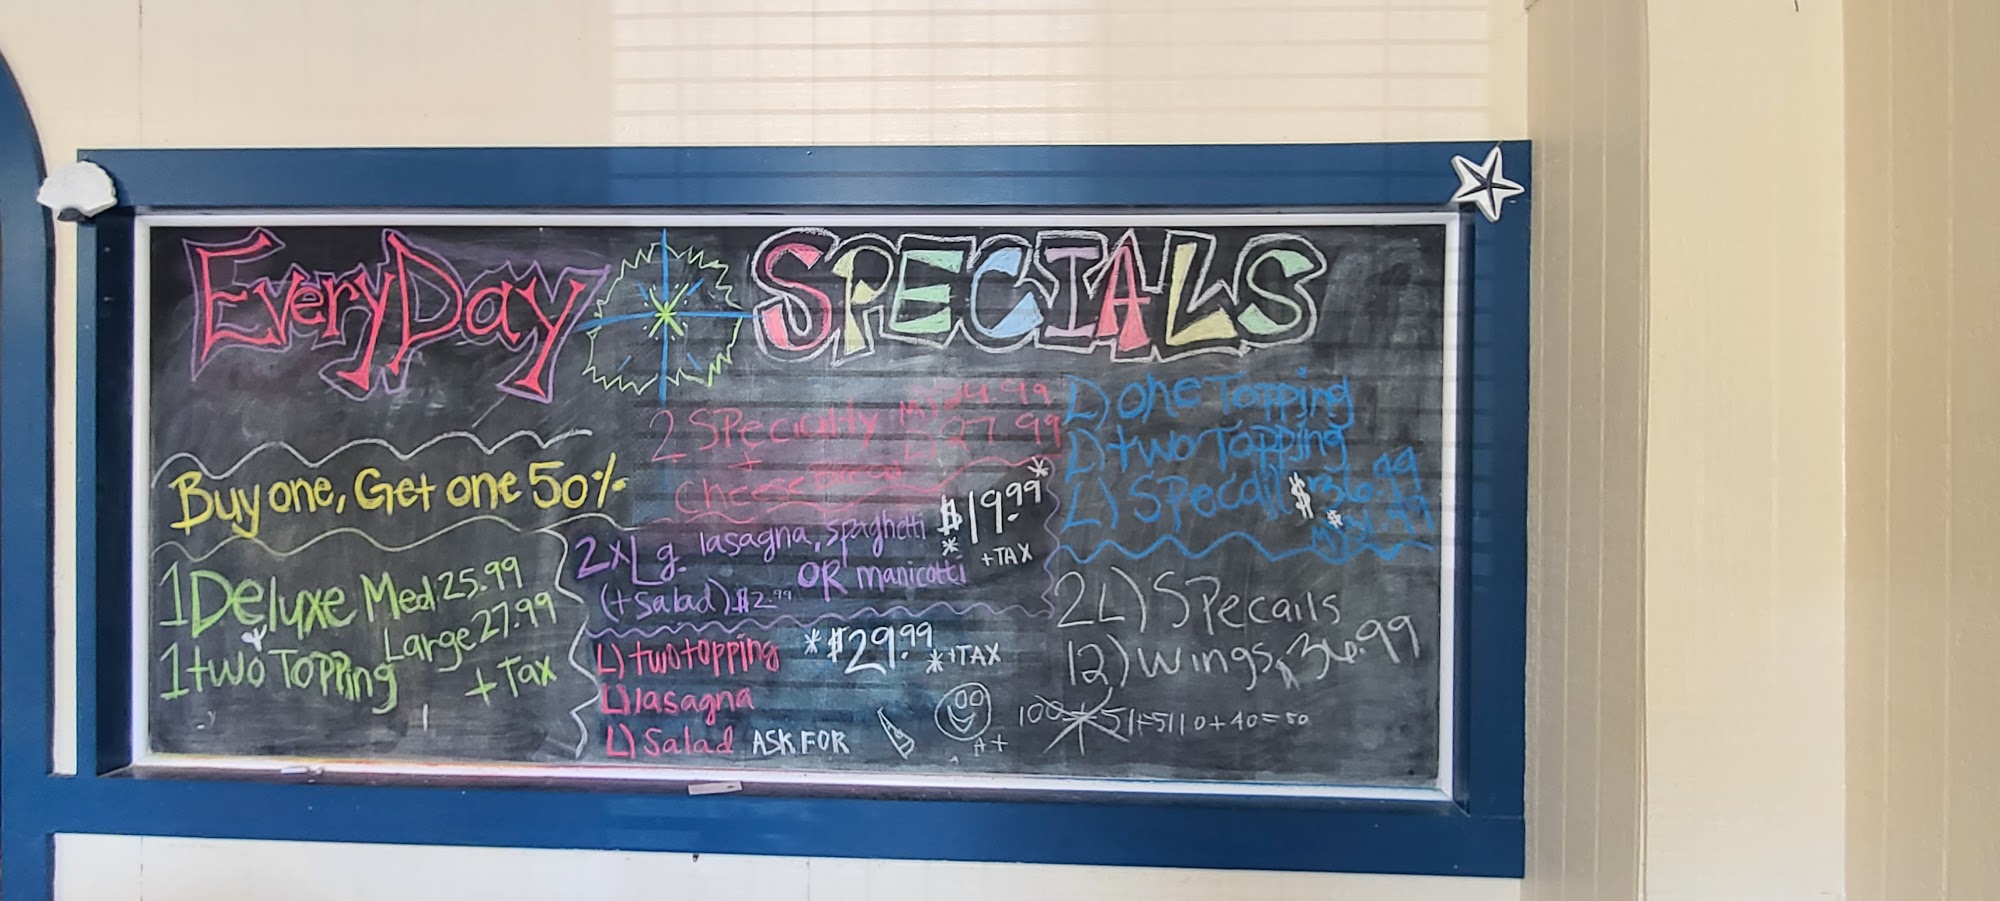 EveryDay SPECIALS
Buy one, Get one 50%
1 Deluxe Med 25.99
Large 27.99
1 two Topping + Tax
2 Specialty M) 24.99
+ L) 27.99
Cheese Bread
2x Lg. lasagna, spaghetti $19.99
OR manicotti + TAX
(+ Salad) $2.99
L) two topping *$29.99
* + TAX
L) lasagna
L) Salad ASK FOR
A+
L) one Topping
L) two Topping
L) Specail $36.99
M) $31.99
2 L) SPecails
12) wings $36.99
10+40=50